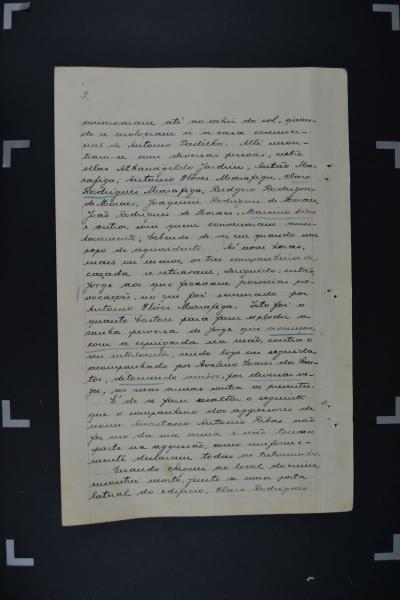 3.
conversaram até ao cahir do sol, quan-
do se resolveram ir a casa commer-
cial de Antonio Padilha. Alli encon-
tram-se com diversas pessoas, entre
ellas Athanagildo Jardim, Antão Ma-
rafiga, Antonio Flôres Marafiga, Claro
Rodrigues Marafiga, Rudgero Rodrigues
de Moraes, Joaquim Rodrigues de Moraes,
João Rodrigues de Moraes, Marcirio Dias
e outros com quem conversaram ani-
madamente, bebendo de vez em quando um
copo de aguardente. As nove horas,
mais ou menos, os tres companheiros de
caçada se retiravam, dirigindo, então
Jorge aos que ficavam pequenas pro-
vocações, no que foi censurado por
Antonio Flôres Marafiga. Isto foi o
quanto bastou para fazer explodir a
sanha perversa de Jorge que avançou
com a espingarda na mão, contra o
seu interlocutor, sendo logo em seguida
acompanhado por Avelino Soares dos San-
tos, detonando ambos por diversas ve-
zes, as suas armas contra os presentes.
É de se fazer resaltar o seguinte
que o companheiro dos aggressores de
nome Anastacio Antonio Ribas não
fez uso da sua arma e não tomou
parte na aggressão, como uniforme-
mente declaram todas as testemunhas.
Quando cheguei ao local do crime
encontrei morto, junto a uma porta
lateral do edificio, Claro Rodrigues